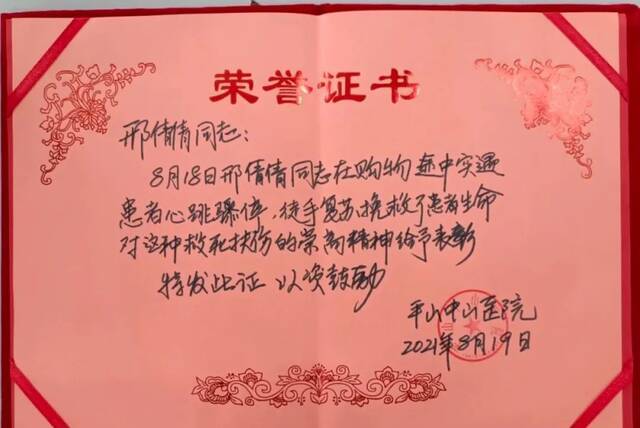 荣誉证书
邢倩倩同志：
8月18日邢倩倩同志在购物途中突遇
患者心跳骤停，徒手复苏，挽救了患者生命
对这种救死扶伤的崇高精神给予表彰
特发此证 以资鼓励
平山中山医院
2021年8月19日